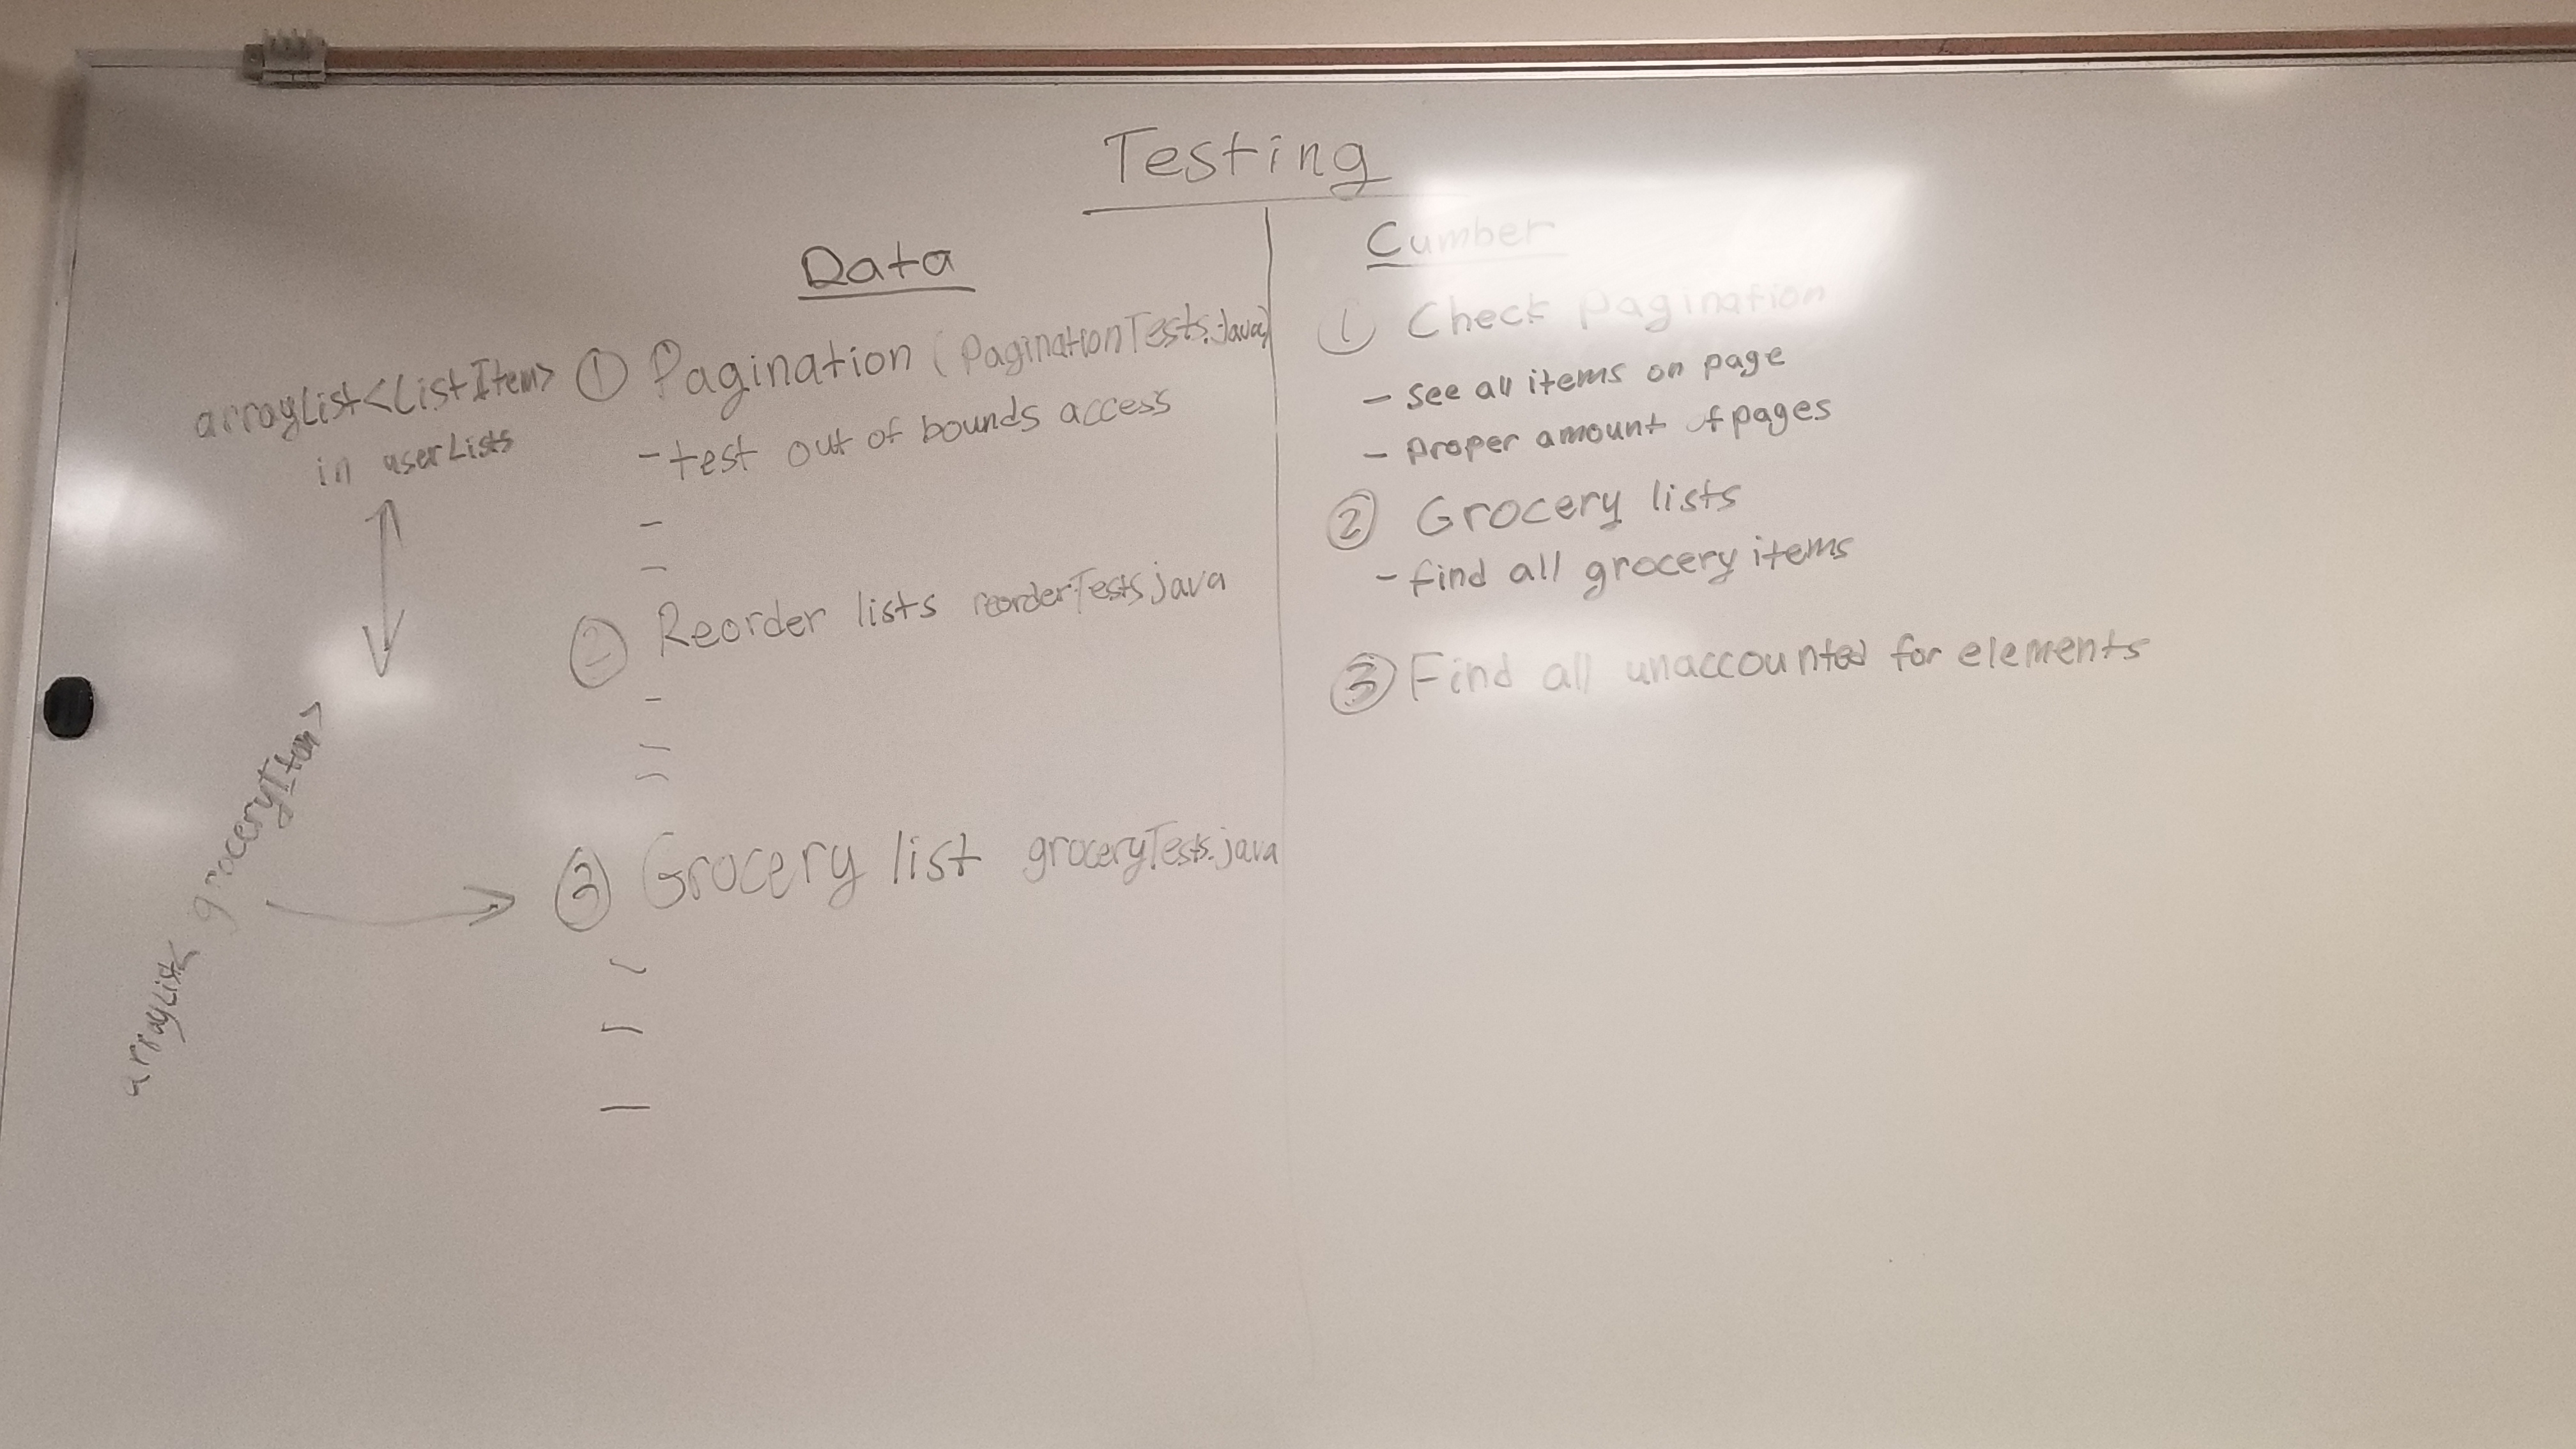 Testing
Data
arrayList<ListItem>
in userLists
① Pagination (PaginationTests.java)
- test out of bounds access
-
-
② Reorder lists reorderTests.java
-
-
-
arrayList< groceryItem>
③ Grocery list groceryTests.java
-
-
-
Cumber
① Check Pagination
- See all items on page
- Proper amount of pages
② Grocery lists
- find all grocery items
③ Find all unaccounted for elements